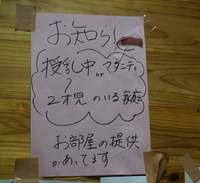 お知らせ
授乳中 or マタニティ
〜
2才児のいる家庭
お部屋の提供
かあってます